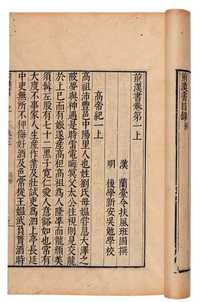 前漢書目錄
前漢書卷第一上
漢 蘭臺令扶風班固撰
明 後學新安吳勉學校
高帝紀 上
高祖沛豐邑中陽里人也姓劉氏母媼嘗息大澤之
陂夢與神遇是時雷電晦冥父太公往視則見交龍
於上已而有娠遂產高祖高祖爲人隆準而龍顏美
須髯左股有七十二黑子寬仁愛人意豁如也常有
大度不事家人生產作業及壯試吏爲泗上亭長廷
中吏無所不狎侮好酒及色常從王媼武負貰酒時